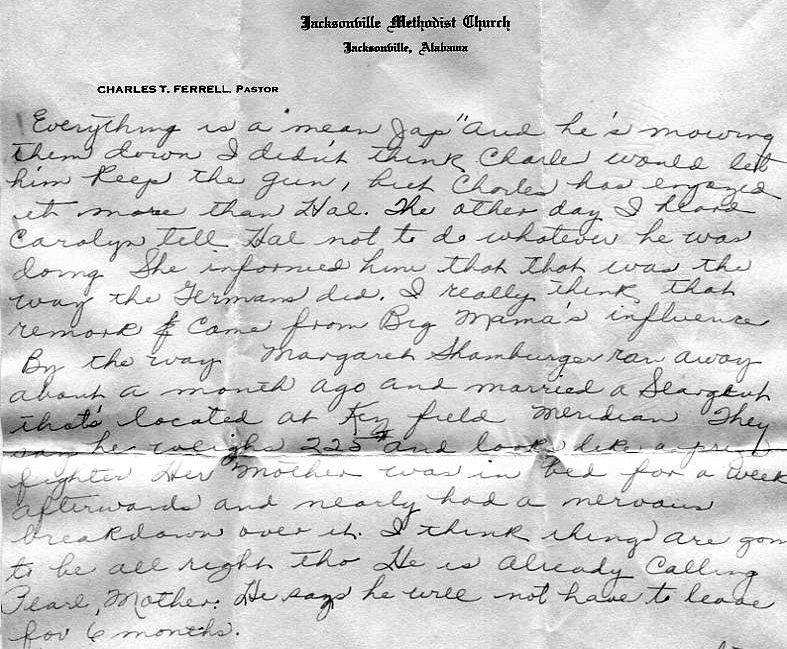 Jacksonville Methodist Church
Jacksonville, Alabama
CHARLES T. FERRELL. PASTOR
Everything is a "mean Jap" and he's mowing
them down I didn't think Charles would let
him keep the gun, but Charles has enjoyed
it more than Hal. The other day I heard
Carolyn tell Hal not to do whatever he was
doing She informed him that that was the
way the Germans did. I really think that
remark came from Big Mama's influence
By the way Margaret Shamburger ran away
about a month ago and married a Seargent
that's located at Key field Meridian They
say he weighs 225# and looks like a prize
fighter Her Mother was in bed for a week
afterwards and nearly had a nervous
breakdown over it. I think things are gon
to be all right tho He is already calling
Pearl, Mother. He says he will not have to leave
for 6 months.